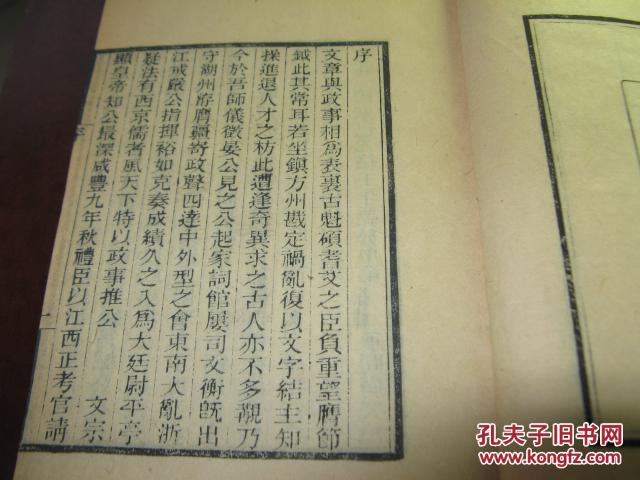 序
文章與政事相爲表裏古魁碩耆艾之臣負重望膺節
鉞此其常耳若坐鎮方州戡定禍亂復以文字結主知
操進退人才之枋此遭逢奇異求之古人亦不多覯乃
今於吾師儀徵晏公見之公起家詞館屢司文衡旣出
守湖州游膺疆寄政聲四達中外型之會東南大亂浙
江戒嚴公指揮裕如克奏成績久之入爲大廷尉平亭
疑法有西京儒者風天下特以政事推公 文宗
顯皇帝知公最深咸豐九年秋禮臣以江西正考官請
序
一
孔夫子旧书网
www.kongfz.com